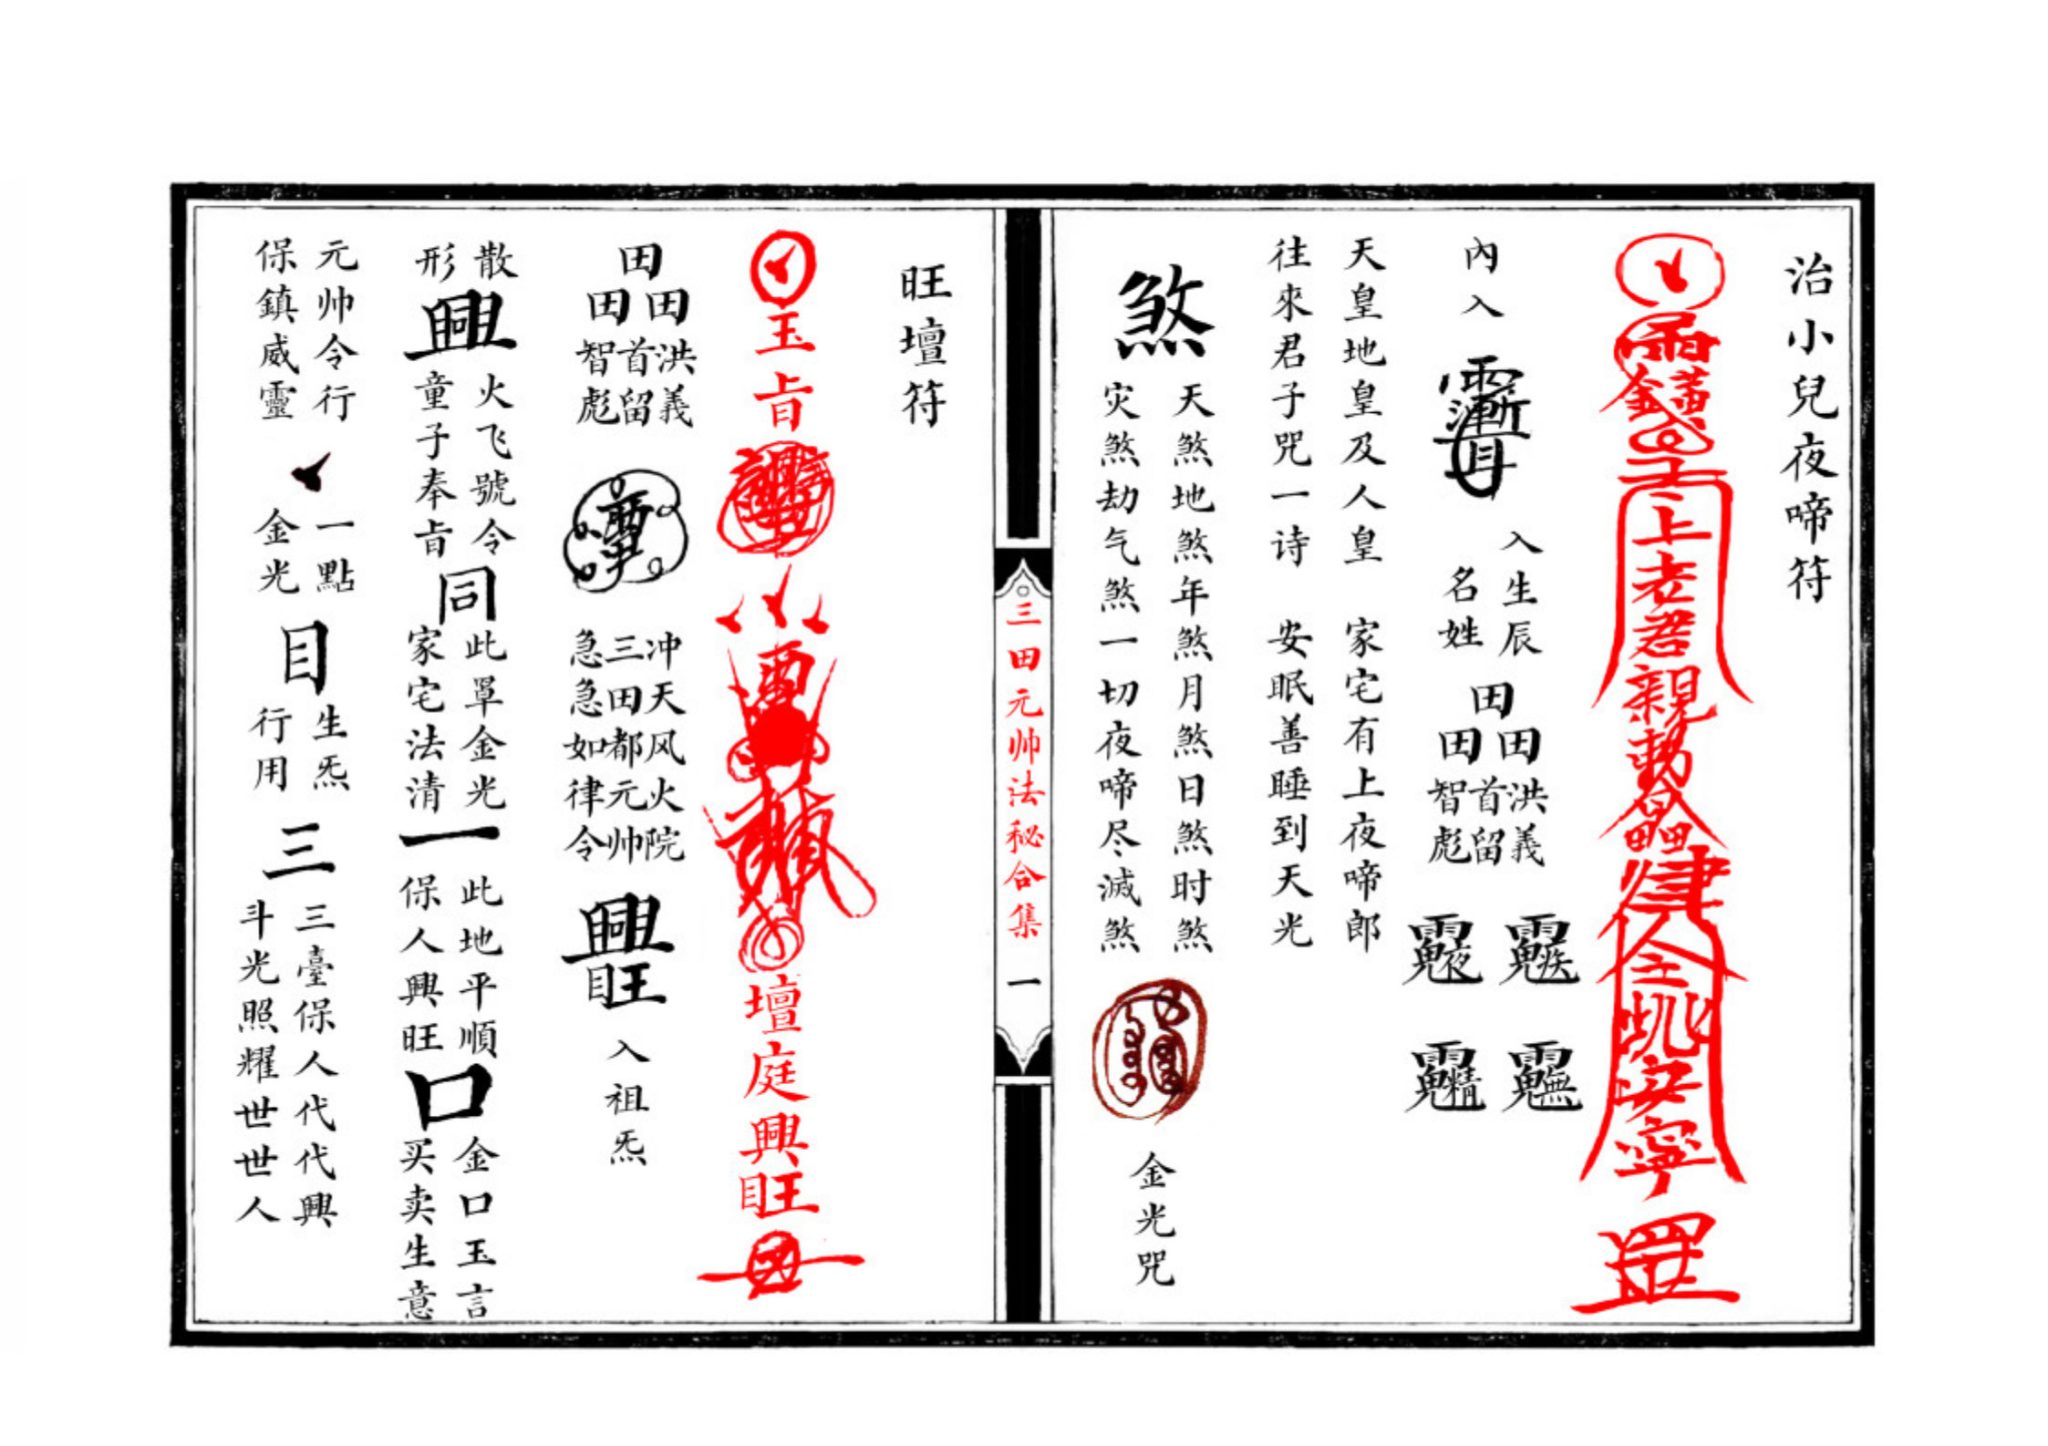 治小兒夜啼符
上老君親勅
令
安寧
罡
內入
入生辰
名姓
田
田田
洪義
首留
智彪
天皇地皇及人皇 家宅有上夜啼郎
往來君子咒一诗 安眠善睡到天光
煞
天煞地煞年煞月煞日煞时煞
灾煞劫气煞一切夜啼尽滅煞
金光咒
三田元帅法秘合集 一
旺壇符
玉旨
壇庭興旺
田
田田
洪義
首留
智彪
冲天风火院
三田都元帅
急急如律令
入祖炁
散
形
興
火飞號令
童子奉旨
同
此罩金光
家宅法清
一
此地平順
保人興旺
口
金口玉言
买卖生意
元帅令行
保鎮威靈
一點
金光
目
生炁
行用
三
三臺保人代代興
斗光照耀世世人